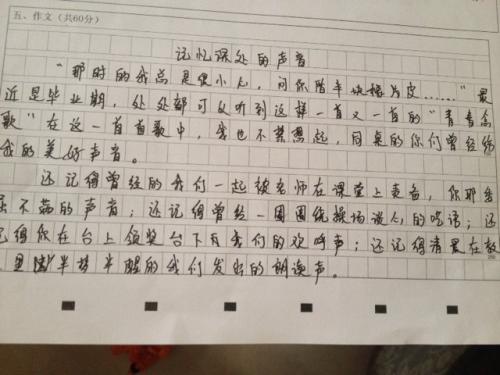 五、作文（共60分）
记忆深处的声音
“那时的我总是很小心，问你借半块橡皮……”最
近是毕业期，处处都可以听到这样一首又一首的“青春
歌”在这一首首歌中，我也不禁想起，同桌的你们曾经给
我的美好声音。
还记得曾经的我们一起被老师在课堂上责备，你那
不满的声音；还记得曾经一圈圈绕操场谈心的笑语；还
记得你在台上领奖台下有我们的欢呼声；还记得清晨在教
里半梦半醒的我们发出的朗读声。